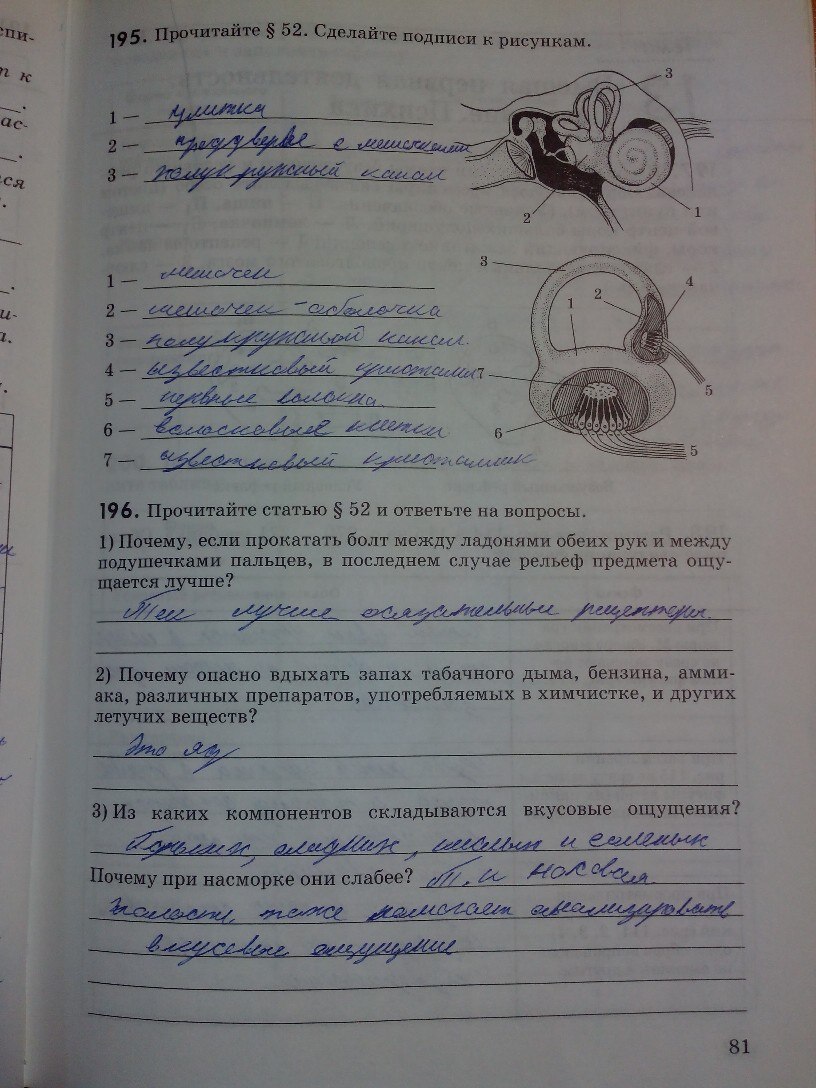 спи-
т к
ас-
ся
и-
а.
195. Прочитайте § 52. Сделайте подписи к рисункам.
1 — улитка
2 — преддверие с мешочками
3 — полукружный канал
3
2
1
1 — мешочек
2 — мешочек - оболочка
3 — полукружный канал.
4 — известковый кристалл
5 — нервные волокна
6 — волосковые клетки
7 — известковый кристаллик
3
1
2
4
7
5
6
5
196. Прочитайте статью § 52 и ответьте на вопросы.
1) Почему, если прокатать болт между ладонями обеих рук и между
подушечками пальцев, в последнем случае рельеф предмета ощу-
щается лучше?
Там лучше осязательные рецепторы.
2) Почему опасно вдыхать запах табачного дыма, бензина, амми-
ака, различных препаратов, употребляемых в химчистке, и других
летучих веществ?
Это яд
3) Из каких компонентов складываются вкусовые ощущения?
Горьких, сладких, кислых и соленых
Почему при насморке они слабее? Т. к носовая
полость тоже помогает анализировать
вкусовые ощущения
81